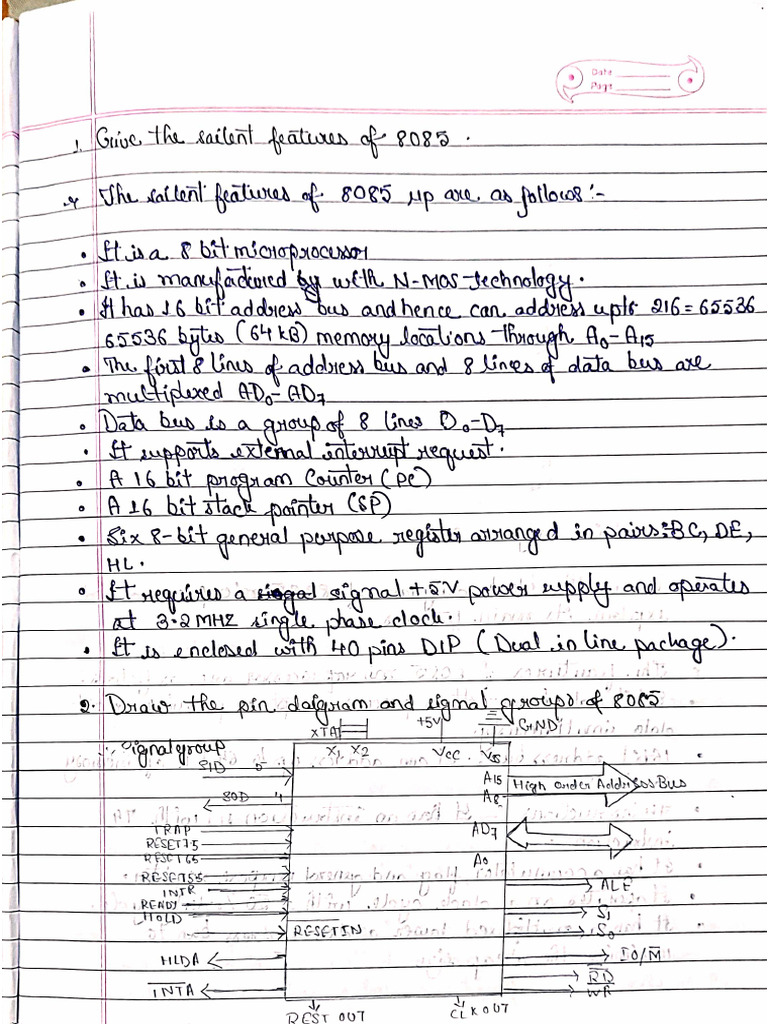 Date
Page
1. Give the sailent features of 8085.
→ The sailent features of 8085 μp are as follows :-
• It is a 8 bit microprocessor
• It is manufactured by with N-MOS technology.
• It has 16 bit address bus and hence can address upto 216 = 65536
65536 bytes (64 kB) memory locations through A0-A15
• The first 8 lines of address bus and 8 lines of data bus are
multiplexed AD0-AD7
• Data bus is a group of 8 lines D0-D7
• It supports external interrupt request.
• A 16 bit program Counter (PC)
• A 16 bit stack pointer (SP)
• Six 8-bit general purpose register arranged in pairs: BC, DE,
HL.
• It requires a signal +5V power supply and operates
at 3.2 MHZ single phase clock.
• It is enclosed with 40 pins DIP (Dual in line package).
2. Draw the pin daigram and signal groups of 8085
XTAL +5V GND
Signal group X1 X2 VCC VSS
SID 5 A15 High Order Address Bus
SOD 4 A8
TRAP AD7
RESET 7.5
RESET 65 A0
RESET 5.5 ALE
INTR
READY S1
HOLD
RESETIN S0
HLDA IO/M̅
I̅N̅T̅A̅ R̅D̅
W̅R̅
REST OUT CLK OUT